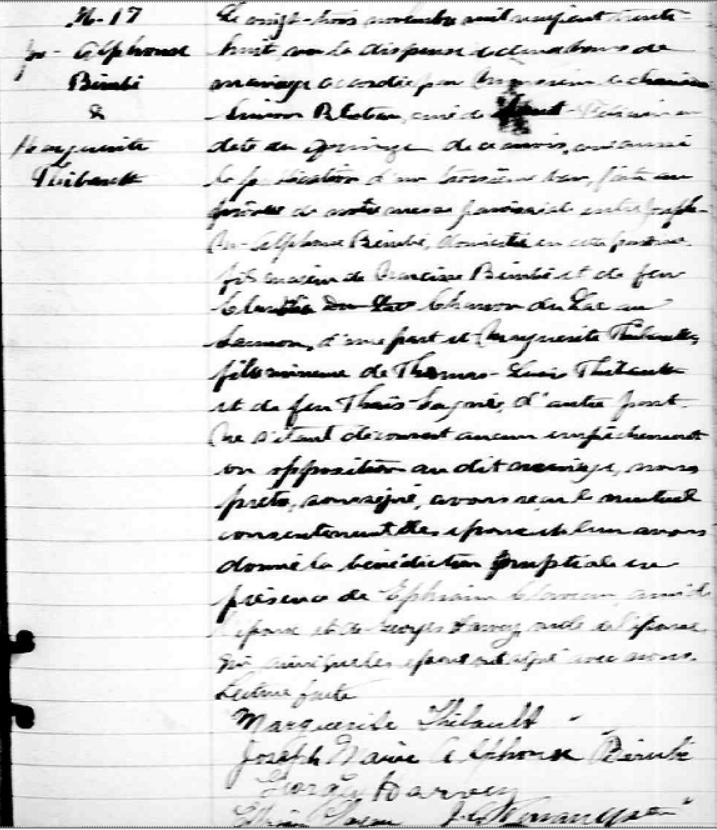 M-17
Jos-Alphonse
Bérubé
&
Marguerite
Thibault
Le vingt-trois novembre mil neuf cent trente-
huit, vu la dispense de deux bans de
mariage accordée par Monsieur le chanoine
curé de
date du quinze de ce mois, vu aussi
la publication d'un troisième ban, faite au
prône de notre messe paroissiale entre Joseph-
M-Alphonse Bérubé, domicilié en cette paroisse
fils majeur de Narcisse Bérubé et de feu
du Lac au
Saumon, d'une part et Marguerite Thibault,
fille mineure de Thomas-Louis Thibault
et de feu Thaïs Gagné, d'autre part.
Ne s'étant découvert aucun empêchement
ou opposition au dit mariage, nous
prêtre, soussigné, avons reçu le mutuel
consentement des époux et leur avons
donné la bénédiction nuptiale en
présence de Ephraim ami de
l'époux et de Georges Harvey, oncle de l'épouse
qui ainsi que les époux ont signé avec nous.
Lecture faite
Marguerite Thibault
Joseph Marie Alphonse Bérubé
Georges Harvey